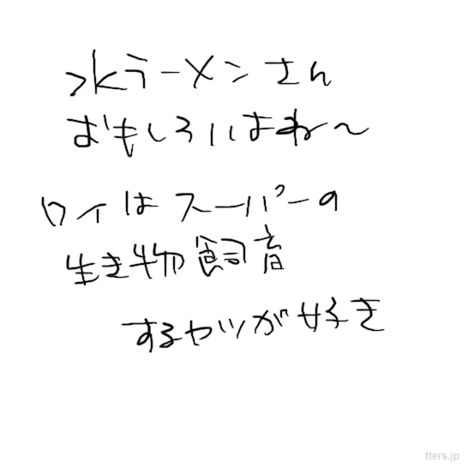 水ラーメンさん
おもしろいよね～
ワイはスーパーの
生き物飼育
するヤツが好き
tters.jp